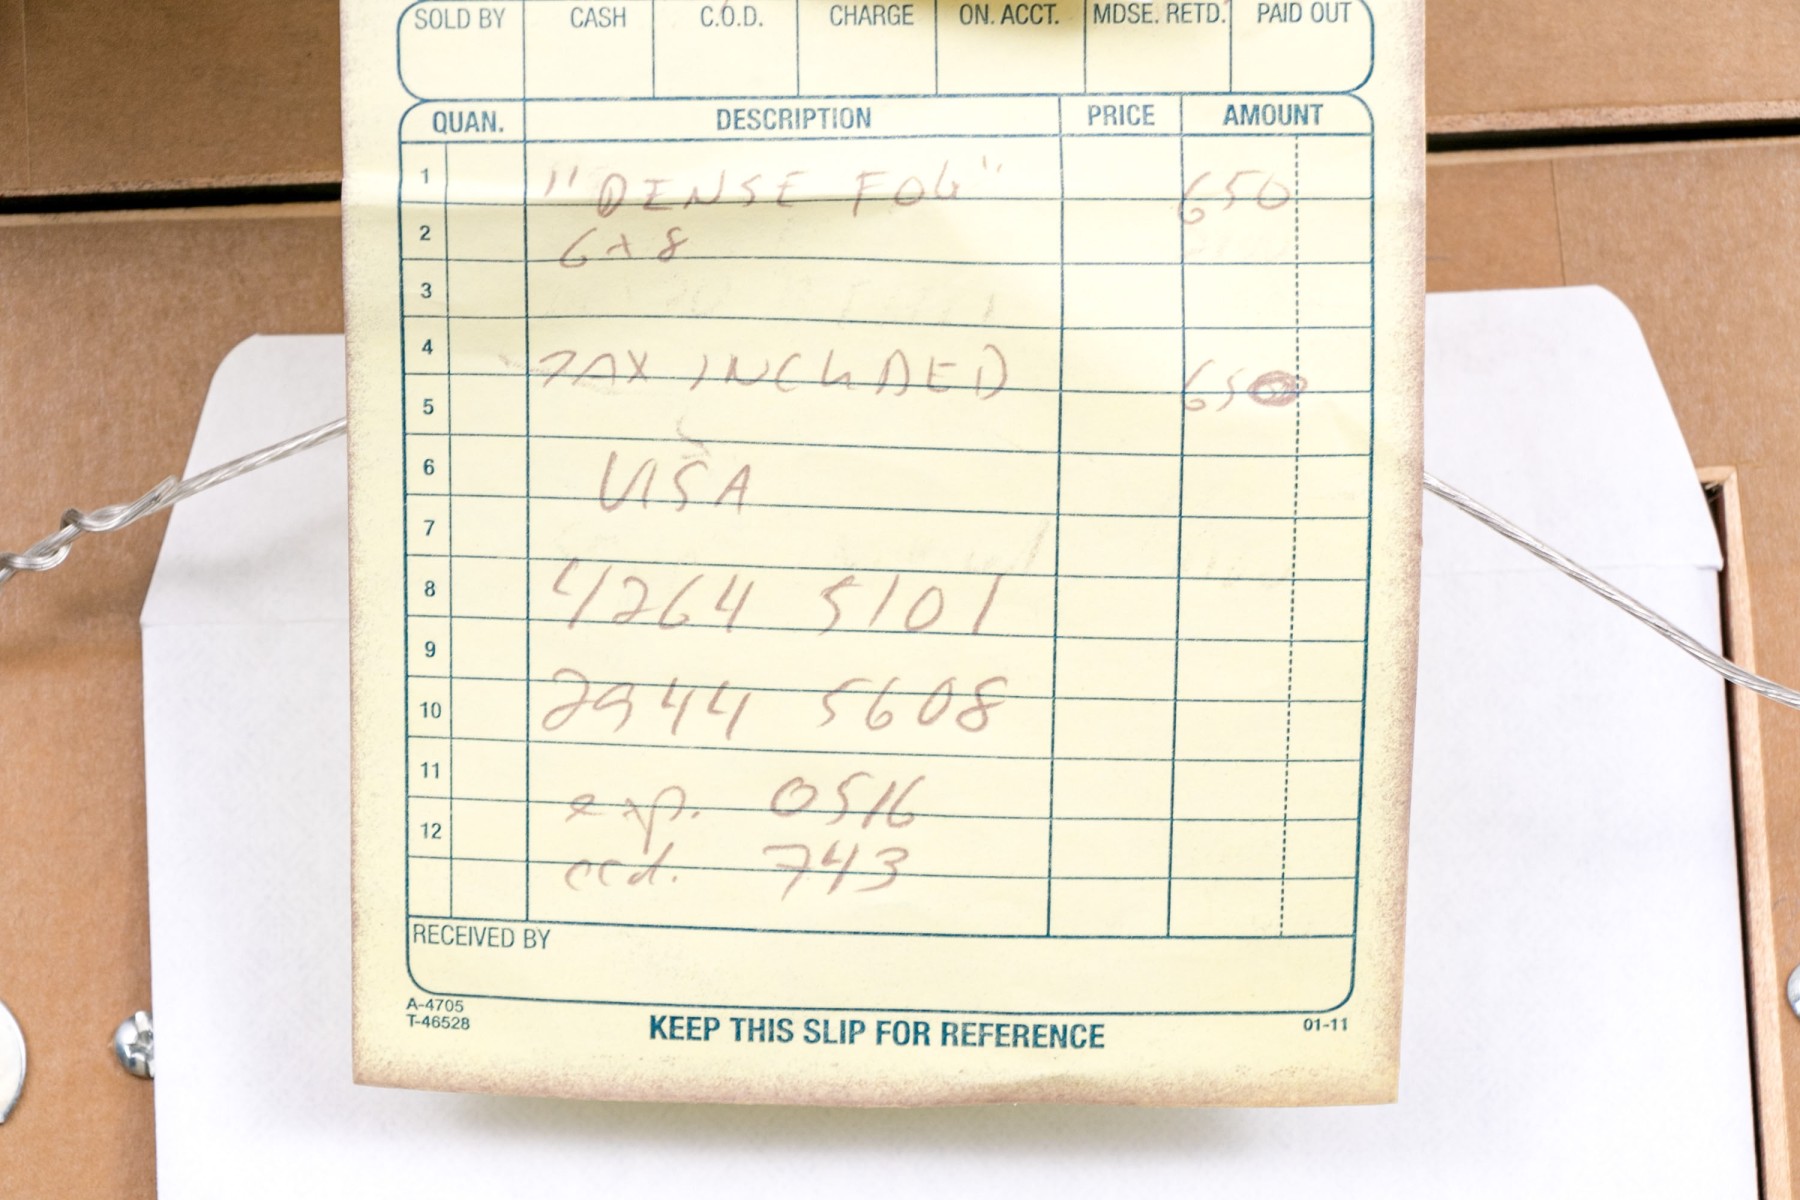 SOLD BY CASH C.O.D. CHARGE ON. ACCT. MDSE. RETD. PAID OUT
QUAN. DESCRIPTION PRICE AMOUNT
1 "DENSE FOG" 650
2 6x8
3
4 TAX INCLUDED 650
5
6 VISA
7
8 4264 5101
9
10 2944 5608
11 exp. 0516
12 ccd. 743
RECEIVED BY
A-4705
T-46528
KEEP THIS SLIP FOR REFERENCE
01-11